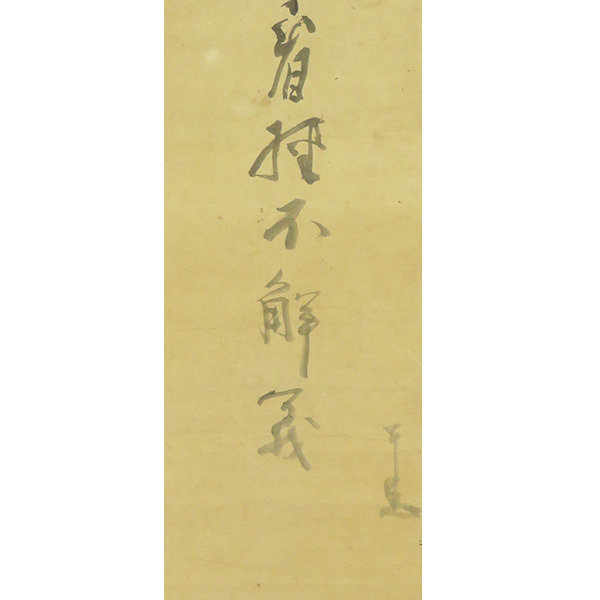 看經不解義